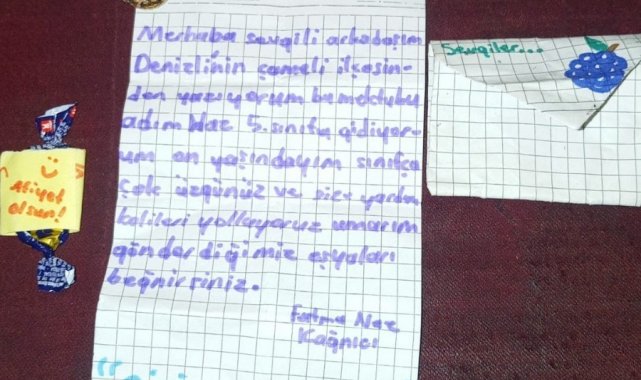 Merhaba sevgili arkadaşım
Denizli'nin çameli ilçesin-
den yazıyorum bu mektubu
adım Naz 5.sınıfa gidiyor-
um on yaşındayım sınıfça
çok üzgünüz ve size yardım
kolileri yolluyoruz umarım
gönderdiğimiz eşyaları
beğnirsiniz.
Fatma Naz
Kağnıcı
Sevgiler...
Afiyet
olsun!